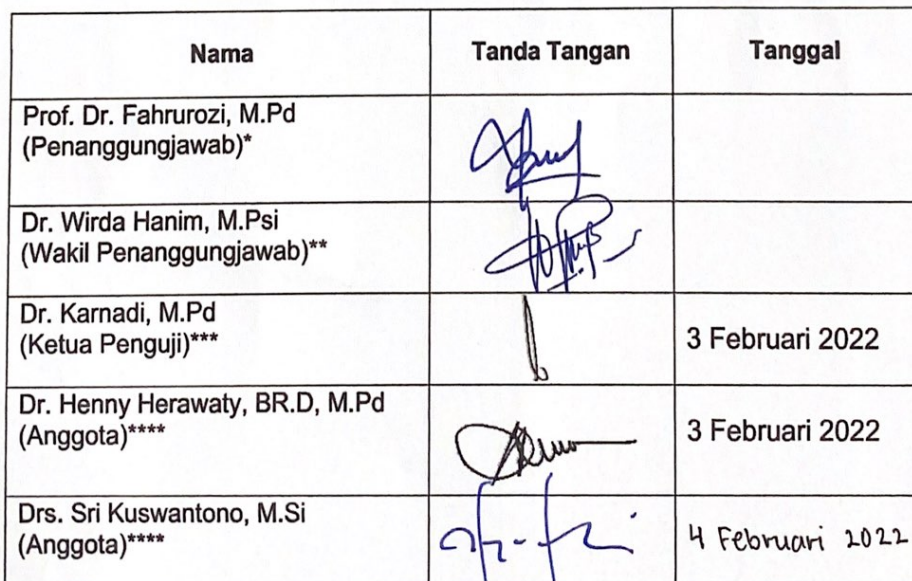 Nama Tanda Tangan Tanggal
Prof. Dr. Fahrurozi, M.Pd
(Penanggungjawab)*
Dr. Wirda Hanim, M.Psi
(Wakil Penanggungjawab)**
Dr. Karnadi, M.Pd
(Ketua Penguji)***
3 Februari 2022
Dr. Henny Herawaty, BR.D, M.Pd
(Anggota)****
3 Februari 2022
Drs. Sri Kuswantono, M.Si
(Anggota)****
4 Februari 2022